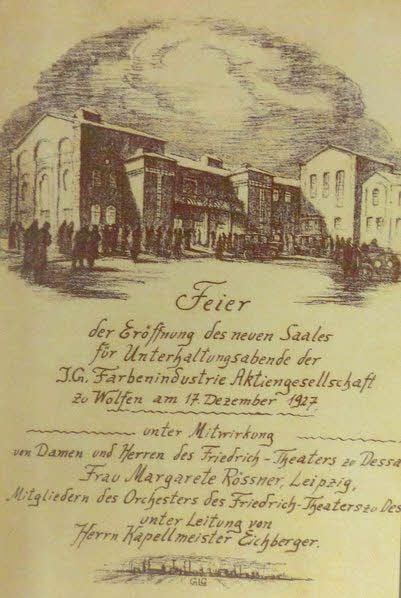 Feier
der Eröffnung des neuen Saales
für Unterhaltungsabende der
I.G. Farbenindustrie Aktiengesellschaft
zu Wolfen am 17. Dezember 1927,
unter Mitwirkung
von Damen und Herren des Friedrich-Theaters zu Dessa
Frau Margarete Rössner, Leipzig,
Mitgliedern des Orchesters des Friedrich-Theaters zu Des
unter Leitung von
Herrn Kapellmeister Eichberger.
GLG